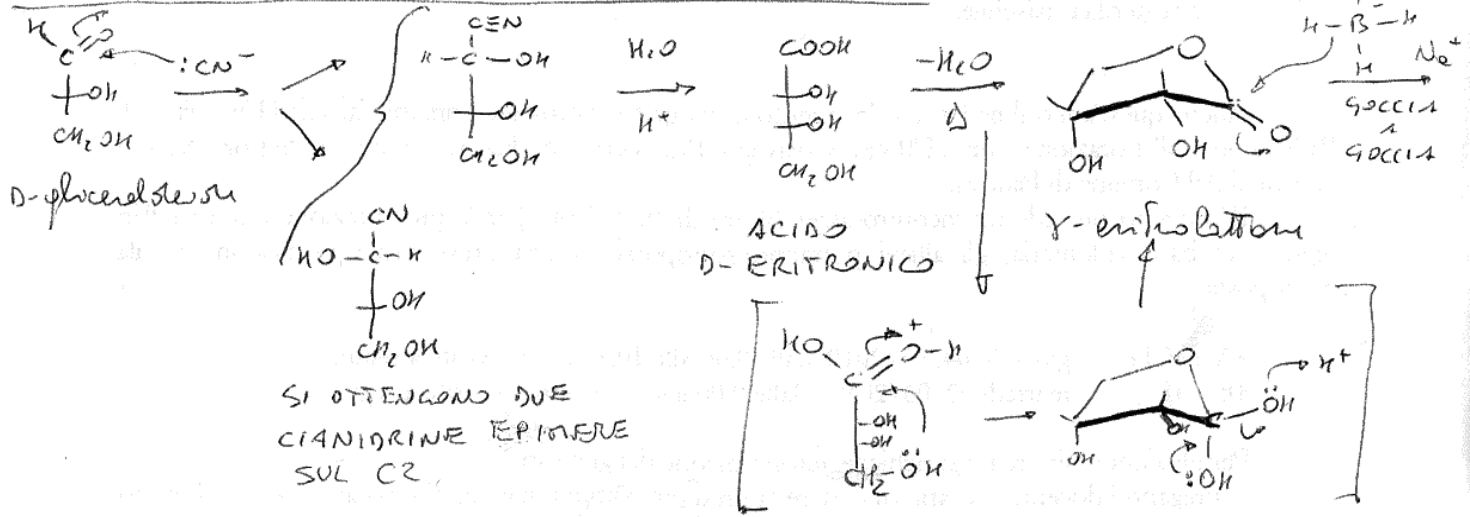 H
C
O
:CN⁻
OH
CH₂OH
D-gliceraldeide
C≡N
H-C-OH
OH
CH₂OH
CN
HO-C-H
OH
CH₂OH
SI OTTENGONO DUE
CIANIDRINE EPIMERE
SUL C2
H₂O
H⁺
COOH
OH
OH
CH₂OH
ACIDO
D-ERITRONICO
-H₂O
Δ
O
O
OH
OH
γ-eritrolattone
H-B-H
H
Na⁺
GOCCIA
A
GOCCIA
HO
C
+
O-H
OH
OH
CH₂-ÖH
O
OH
OH
C
ÖH
H⁺
:OH